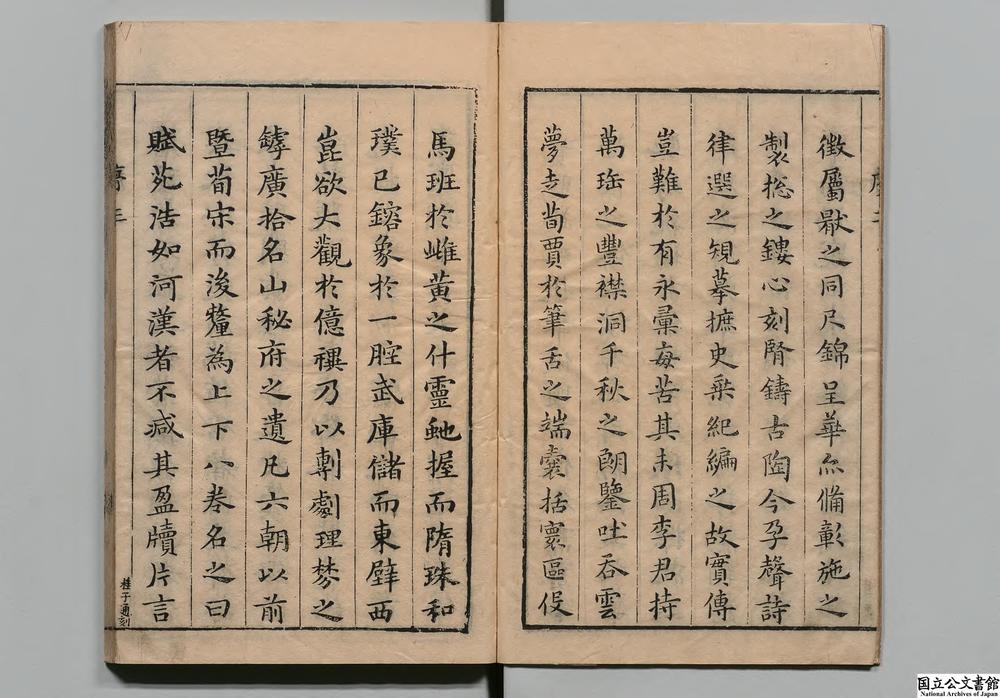 徵屬厭之同尺錦呈華灬備彰施之
製揔之鏤心刻腎鑄古陶今孕聲詩
律選之䂓摹摭史乘紀編之故實傳
豈難於有永彙每苦其未周李君持
萬珤之豐襟洞千秋之朗鑒吐吞雲
夢走荀賈於筆舌之端囊括寰區伇
馬班於雌黃之什靈虵握而隋珠和
璞已鎔象於一腔武庫儲而東壁西
崑欲大觀於億禩乃以剸劇理棼之
罅廣拾名山秘府之遺凡六朝以前
暨荀宋而後釐為上下八卷名之曰
賦苑浩如河漢者不减其盈牘片言
序三
桂子通刻
国立公文書館
National Archives of Japan